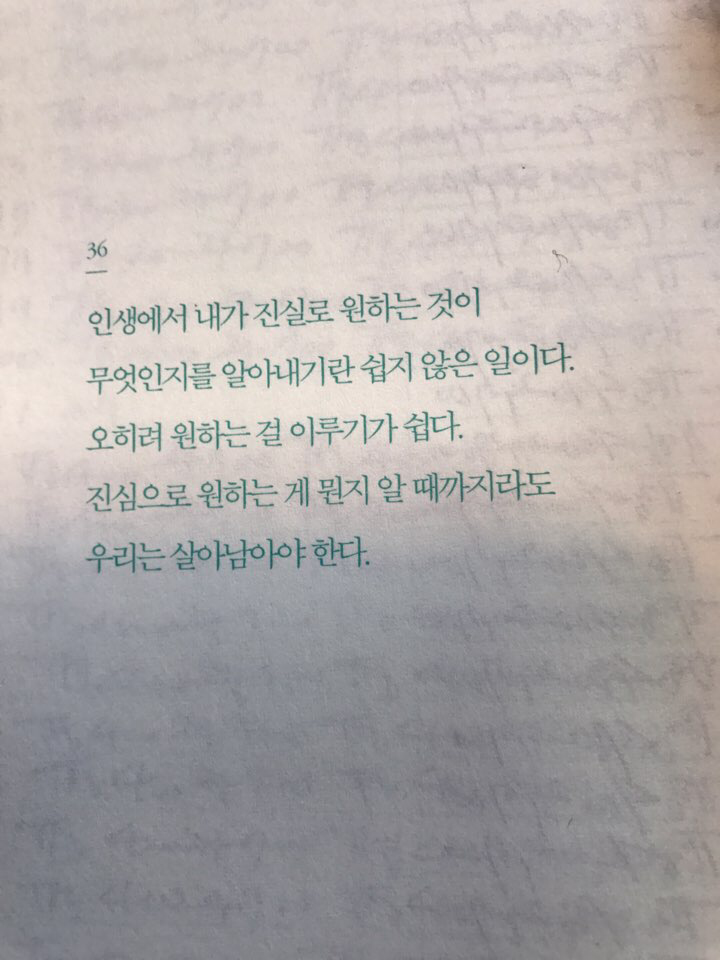 36
인생에서 내가 진실로 원하는 것이
무엇인지를 알아내기란 쉽지 않은 일이다.
오히려 원하는 걸 이루기가 쉽다.
진심으로 원하는 게 뭔지 알 때까지라도
우리는 살아남아야 한다.